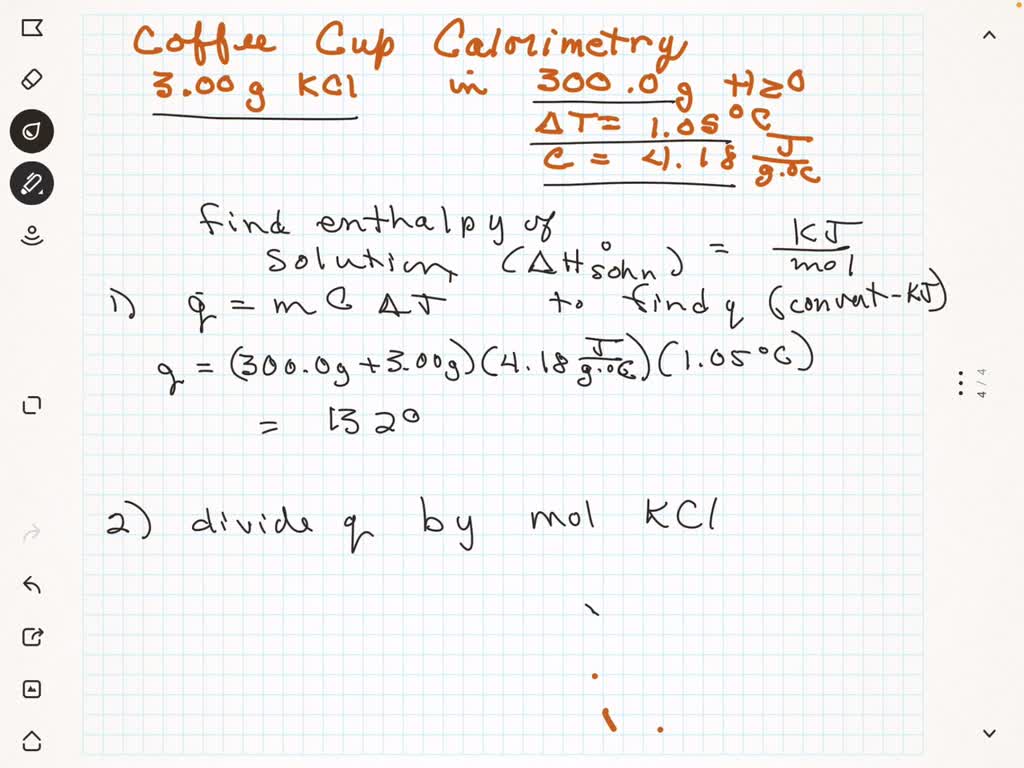 Coffee Cup Calorimetry
3.00g KCl in 300.0g H2O
ΔT = 1.05°C
C = 4.18 J/g·°C
find enthalpy of
solution (ΔH°soln) = KJ/mol
1) q = m C ΔT to find q (convert-KJ)
q = (300.0g + 3.00g)(4.18 J/g·°C)(1.05°C)
= 1320
2) divide q by mol KCl
4/4